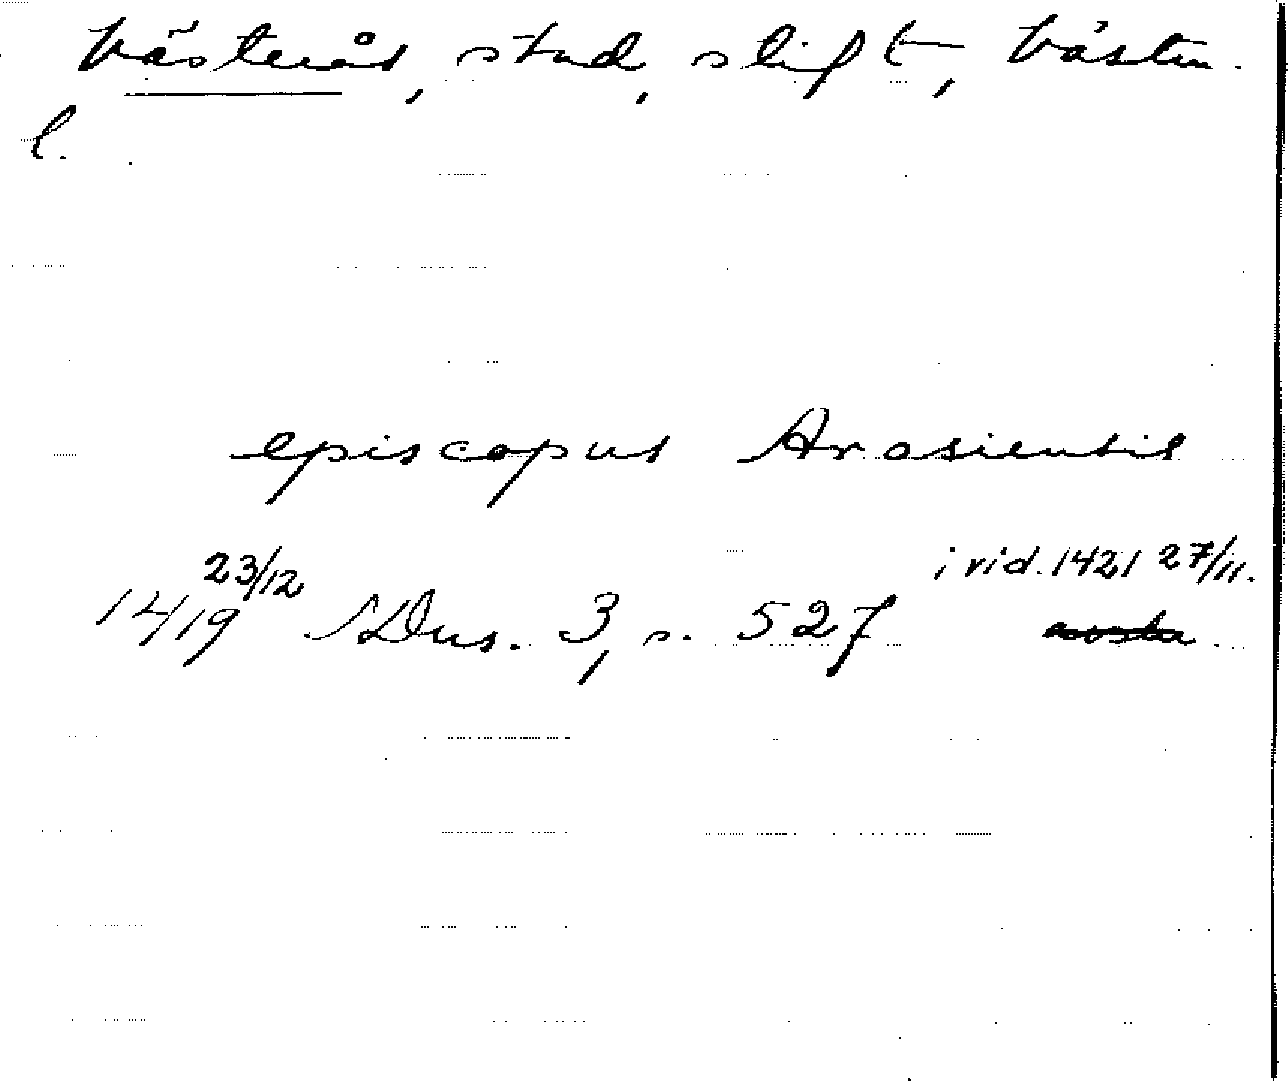 Västerås, stad, stift, Västm.
l.
episcopus Arosiensis
23/12 i vid. 1421 27/11.
1419 SDns. 3, s. 527